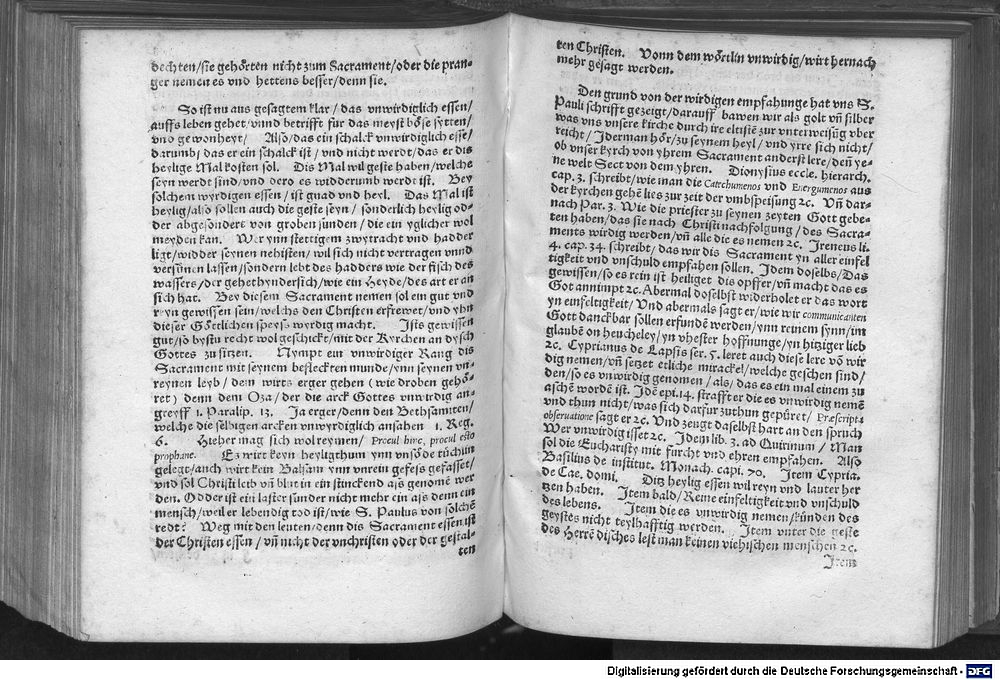 dechten/sie gehörten nicht zum Sacrament/oder die pran-
ger nemen es vnd hettens besser/denn sie.
So ist nu aus gesagtem klar/das vnwirdiglich essen/
auffs leben gehet/vnnd betrifft für das meyst böse sytten/
vnd gewonheyt/ Also/das ein schalck vnwirdiglich esse/
darumb/das er ein schalck ist/vnd nicht werdt/das er dis
heylige Mal kosten sol. Dis Mal wil geste haben/welche
seyn werdt sind/vnd dero es widderumb werdt ist. Bey
solchem wyrdigen essen/ist gnad vnd heyl. Das Mal ist
heylig/also sollen auch die geste seyn/sonderlich heylig od-
der abgesondert von groben sünden/die ein yglicher wol
meyden kan. Wer ynn stettigem zwytracht vnd hadder
ligt/widder seynen nehisten/wil sich nicht vertragen vnnd
versünen lassen/sondern lebt des hadders wie der fisch des
wassers/der gehet hyndersich/wie ein Heyde/des art er an
sich hat. Bey diesem Sacrament nemen sol ein gut vnd
reyn gewissen sein/welchs den Christen erfrewet/vnd yhn
dieser Göttlichen speyss wyrdig macht. Ists gewissen
gut/so bystu recht wol geschickt/mit der Kyrchen an dysch
Gottes zu sitzen. Nympt ein vnwirdiger Rang dis
Sacrament mit seynem befleckten munde/ynn seynen vn-
reynen leyb/dem wirts erger gehen (wie droben gehö-
ret) denn dem Oza/der die arck Gottes vnwirdig an-
greyff 1. Paralip. 13. Ja erger/denn den Bethsamiten/
welche die selbigen arcken vnwyrdiglich ansahen 1. Reg.
6. Hieher mag sich wol reymen/ Procul hinc, procul esto
prophane. Es wirt keyn heyligthum ynn vnsöde tüchin
gelegt/auch wirt kein Balsam ynn vnrein gefess gefasset/
vnd sol Christi leib vñ blut in ein stinckend ass genomē wer
den. Odder ist ein laster sunder nicht mehr ein ass denn ein
mensch/weil er lebendig tod ist/wie S. Paulus von solchē
redt? Weg mit den leuten/denn dis Sacrament essen ist
der Christen essen/vñ nicht der vnchristen oder der gestal-
ten
ten Christen. Vonn dem wörtlin vnwirdig/wirt hernach
mehr gesagt werden.
Den grund von der wirdigen empfahunge hat vns S.
Pauli schrifft gezeigt/darauff bawen wir als golt vñ silber
was vns vnsere kirche durch ire eltistē zur vnterweisūg vber
reicht/Jderman hör/zu seynem heyl/vnd yrre sich nicht/
ob vnser kyrch von yhrem Sacrament anderst lere/deñ ye-
ne welt Sect von dem yhren. Dionysius eccle. hierarch.
cap. 3. schreibt/wie man die Catechumenos vnd Energumenos aus
der kyrchen gehē lies zur zeit der vmbspeisung 2c. Vñ dar-
nach Par. 3. Wie die priester zu seynen zeyten Gott gebe-
ten haben/das sie nach Christi nachfolgung/des Sacra-
ments wirdig werden/vñ alle die es nemen 2c. Ireneus li.
4. cap. 34. schreibt/das wir dis Sacrament yn aller einfel
tigkeit vnd vnschuld empfahen sollen. Idem doselbs/Das
gewissen/so es rein ist heiliget dis opffer/vñ macht das es
Got annimpt 2c. Abermal doselbst widerholet er das wort
yn einfeltigkeit/Vnd abermals sagt er/wie wir communicanten
Gott danckbar sollen erfundē werden/ynn reinem synn/im
glaubē on heucheley/yn vhester hoffnunge/yn hitziger lieb
2c. Cyprianus de Lapsis ser. 5. leret auch diese lere vō wir
dig nemen/vñ setzet etliche mirackel/welche geschen sind/
den/so es vnwirdig genomen/als/das es ein mal einem zu
aschē wordē ist. Idē epi. 14. strafft er die es vnwirdig nemē
vnd thun nicht/was sich darfür zuthun gepüret/ Præscripta
obseruatione sagt er 2c. Vnd zeugt daselbst hart an den spruch
Wer vnwirdig isset 2c. Idem lib. 3. ad Quirinum/Man
sol die Eucharisty mit furcht vnd ehren empfahen. Also
Basilius de institut. Monach. capi. 70. Item Cypria.
de Cae. domi. Ditz heylig essen wil reyn vnd lauter her
tzen haben. Item bald/Reine einfeltigkeit vnd vnschuld
des lebens. Item die es vnwirdig nemen/künden des
geystes nicht teylhafftig werden. Item vnter die geste
des Herrē disches lest man keinen viehischen menschen 2c.
Item
Digitalisierung gefördert durch die Deutsche Forschungsgemeinschaft - DFG